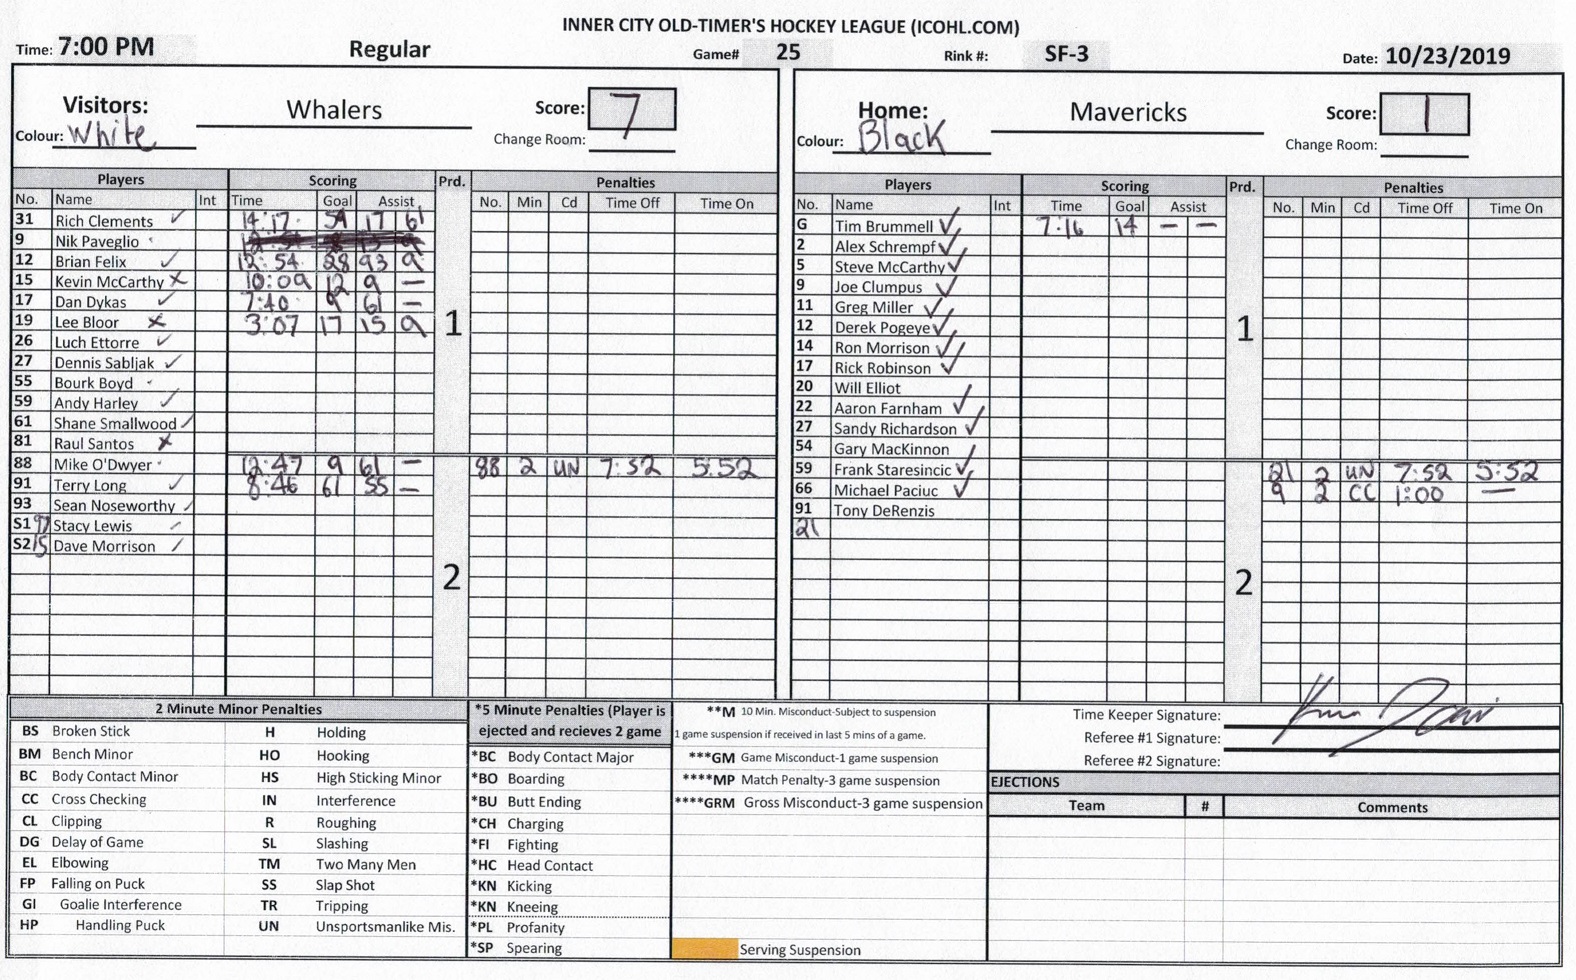 INNER CITY OLD-TIMER'S HOCKEY LEAGUE (ICOHL.COM)
Time: 7:00 PM Regular Game# 25 Rink #: SF-3 Date: 10/23/2019
Visitors: Whalers Score: 7
Colour: White Change Room:
Home: Mavericks Score: 1
Colour: Black Change Room:
Players Scoring Prd. Penalties
No. Name Int Time Goal Assist No. Min Cd Time Off Time On
31 Rich Clements ✓ 14:17 59 17 61
9 Nik Paveglio
12 Brian Felix ✓ 12:54 28 93 9
15 Kevin McCarthy X 10:09 12 9 —
17 Dan Dykas ✓ 7:40 9 61 —
19 Lee Bloor X 3:07 17 15 9
1
26 Luch Ettorre ✓
27 Dennis Sabljak ✓
55 Bourk Boyd
59 Andy Harley ✓
61 Shane Smallwood ✓
81 Raul Santos X
88 Mike O'Dwyer 12:47 9 61 — 88 2 UN 7:52 5:52
91 Terry Long ✓ 8:46 61 55 —
93 Sean Noseworthy ✓
S1 97 Stacy Lewis ✓
S2 15 Dave Morrison ✓
2
Players Scoring Prd. Penalties
No. Name Int Time Goal Assist No. Min Cd Time Off Time On
G Tim Brummell ✓ 7:16 14 — —
2 Alex Schrempf ✓
5 Steve McCarthy ✓
9 Joe Clumpus ✓
11 Greg Miller ✓
12 Derek Pogeye ✓
1
14 Ron Morrison ✓
17 Rick Robinson ✓
20 Will Elliot
22 Aaron Farnham ✓
27 Sandy Richardson ✓
54 Gary MacKinnon
59 Frank Staresincic ✓ 21 2 UN 7:52 5:52
66 Michael Paciuc ✓ 9 2 CC 1:00 —
91 Tony DeRenzis
21
2
2 Minute Minor Penalties
BS Broken Stick H Holding
BM Bench Minor HO Hooking
BC Body Contact Minor HS High Sticking Minor
CC Cross Checking IN Interference
CL Clipping R Roughing
DG Delay of Game SL Slashing
EL Elbowing TM Two Many Men
FP Falling on Puck SS Slap Shot
GI Goalie Interference TR Tripping
HP Handling Puck UN Unsportsmanlike Mis.
*5 Minute Penalties (Player is
ejected and recieves 2 game
*BC Body Contact Major
*BO Boarding
*BU Butt Ending
*CH Charging
*FI Fighting
*HC Head Contact
*KN Kicking
*KN Kneeing
*PL Profanity
*SP Spearing
**M 10 Min. Misconduct-Subject to suspension
1 game suspension if received in last 5 mins of a game.
***GM Game Misconduct-1 game suspension
****MP Match Penalty-3 game suspension
****GRM Gross Misconduct-3 game suspension
Serving Suspension
Time Keeper Signature:
Referee #1 Signature:
Referee #2 Signature:
EJECTIONS
Team # Comments